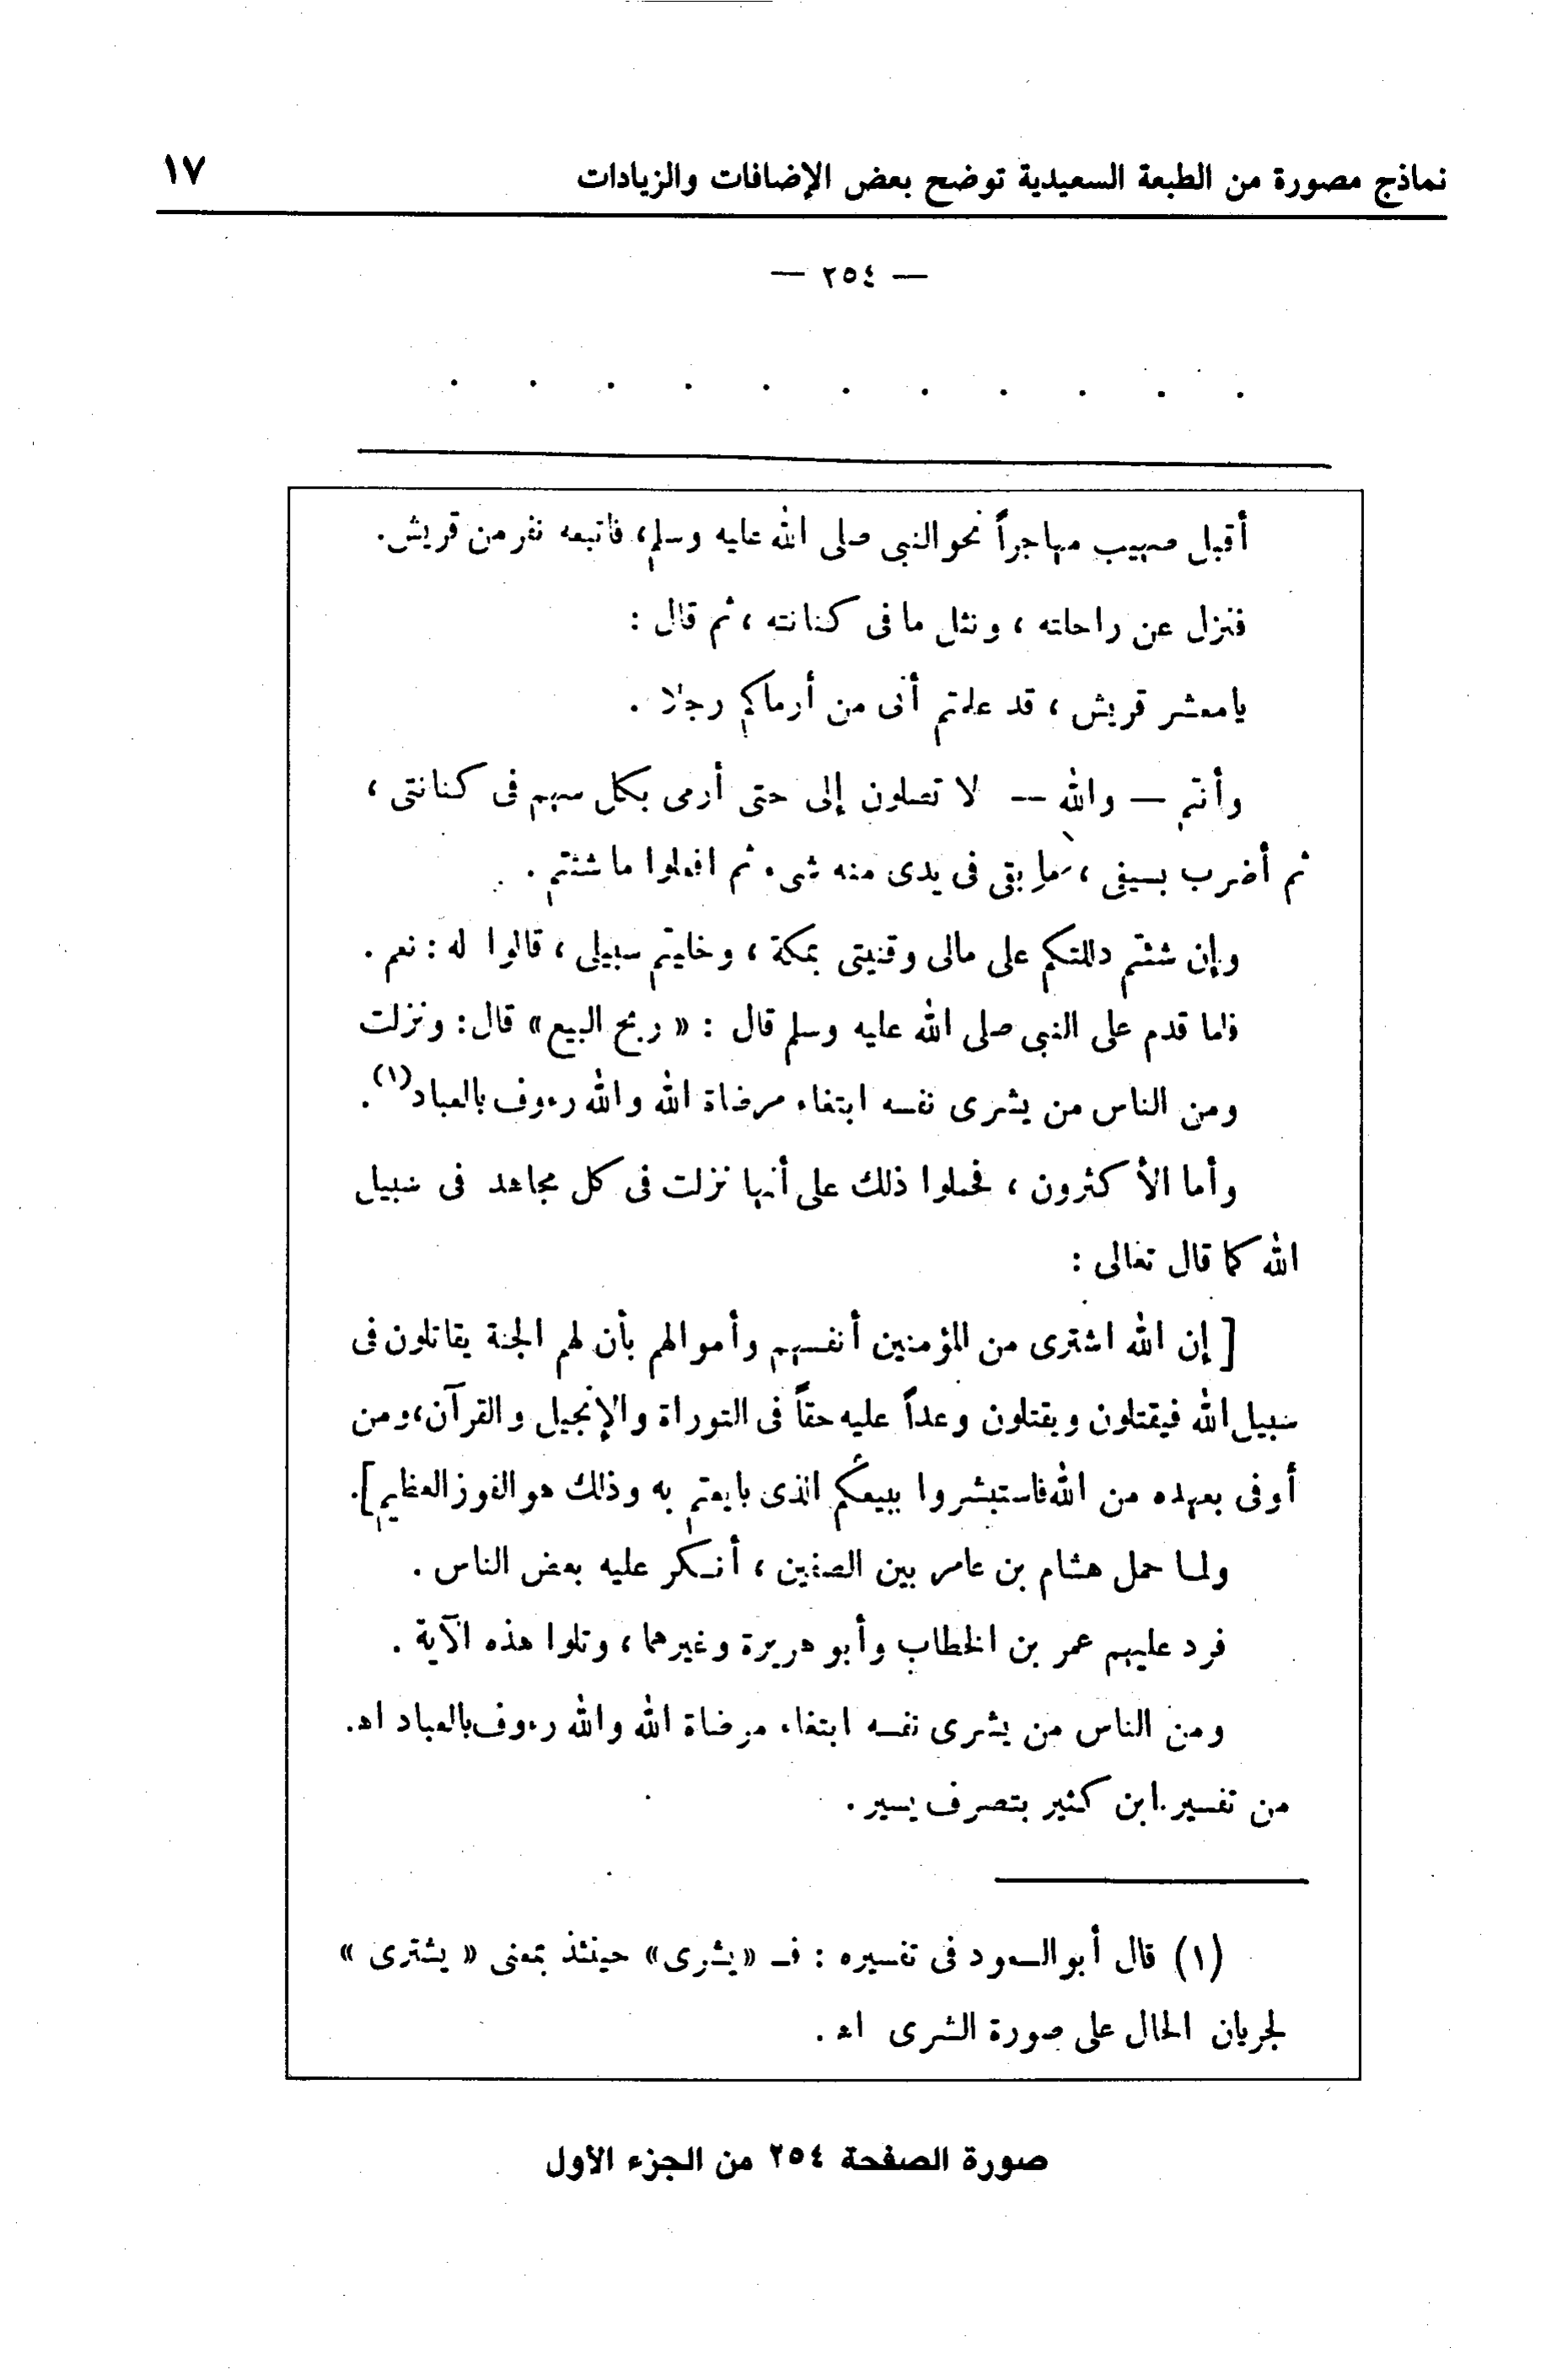 نماذج مصورة من الطبعة السعيدية توضح بعض الإضافات والزيادات ١٧
— ٢٥٤ —
. . . . . . . . . . .
أقبل صهيب مهاجراً نحو النبى صلى الله عليه وسلم، فاتبعه نفر من قريش.
فنزل عن راحلته ، ونثل ما فى كنانته ، ثم قال :
يا معشر قريش ، قد علمتم أنى من أرماكم رجلا .
وأنتم — والله — لا تصلون إلى حتى أرمى بكل سهم فى كنانتى ،
ثم أضرب بسيفى ، ما بقى فى يدى منه شىء ثم افعلوا ما شئتم .
وإن شئتم دللتكم على مالى وقنيتى بمكة ، وخليتم سبيلى ، قالوا له : نعم .
فلما قدم على النبى صلى الله عليه وسلم قال : « ربح البيع » قال : ونزلت
ومن الناس من يشرى نفسه ابتغاء مرضاة الله والله رءوف بالعباد (١) .
وأما الأكثرون ، فحملوا ذلك على أنها نزلت فى كل مجاهد فى سبيل
الله كما قال تعالى :
[ إن الله اشترى من المؤمنين أنفسهم وأموالهم بأن لهم الجنة يقاتلون فى
سبيل الله فيقتلون ويقتلون وعداً عليه حقاً فى التوراة والإنجيل والقرآن ، ومن
أوفى بعهده من الله فاستبشروا ببيعكم الذى بايعتم به وذلك هو الفوز العظيم ].
ولما حمل هشام بن عامر بين الصفين ، أنكر عليه بعض الناس .
فرد عليهم عمر بن الخطاب وأبو هريرة وغيرهما ، وتلوا هذه الآية .
ومن الناس من يشرى نفسه ابتغاء مرضاة الله والله رءوف بالعباد اهـ.
من تفسير ابن كثير بتصرف يسير .
(١) قال أبو السعود فى تفسيره : فـ «يشرى» حينئذ بمعنى « يشترى »
لجريان الحال على صورة الشرى اهـ .
صورة الصفحة ٢٥٤ من الجزء الأول